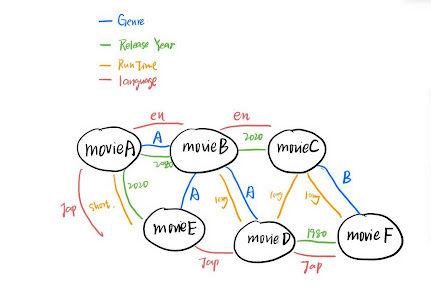 Genre
Release Year
Run Time
language
en
en
movieA
A
2020
movieB
2020
movieC
Jap
short.
2020
A
long
A
long
long
B
movieE
movieD
1980
movieF
Jap
Jap